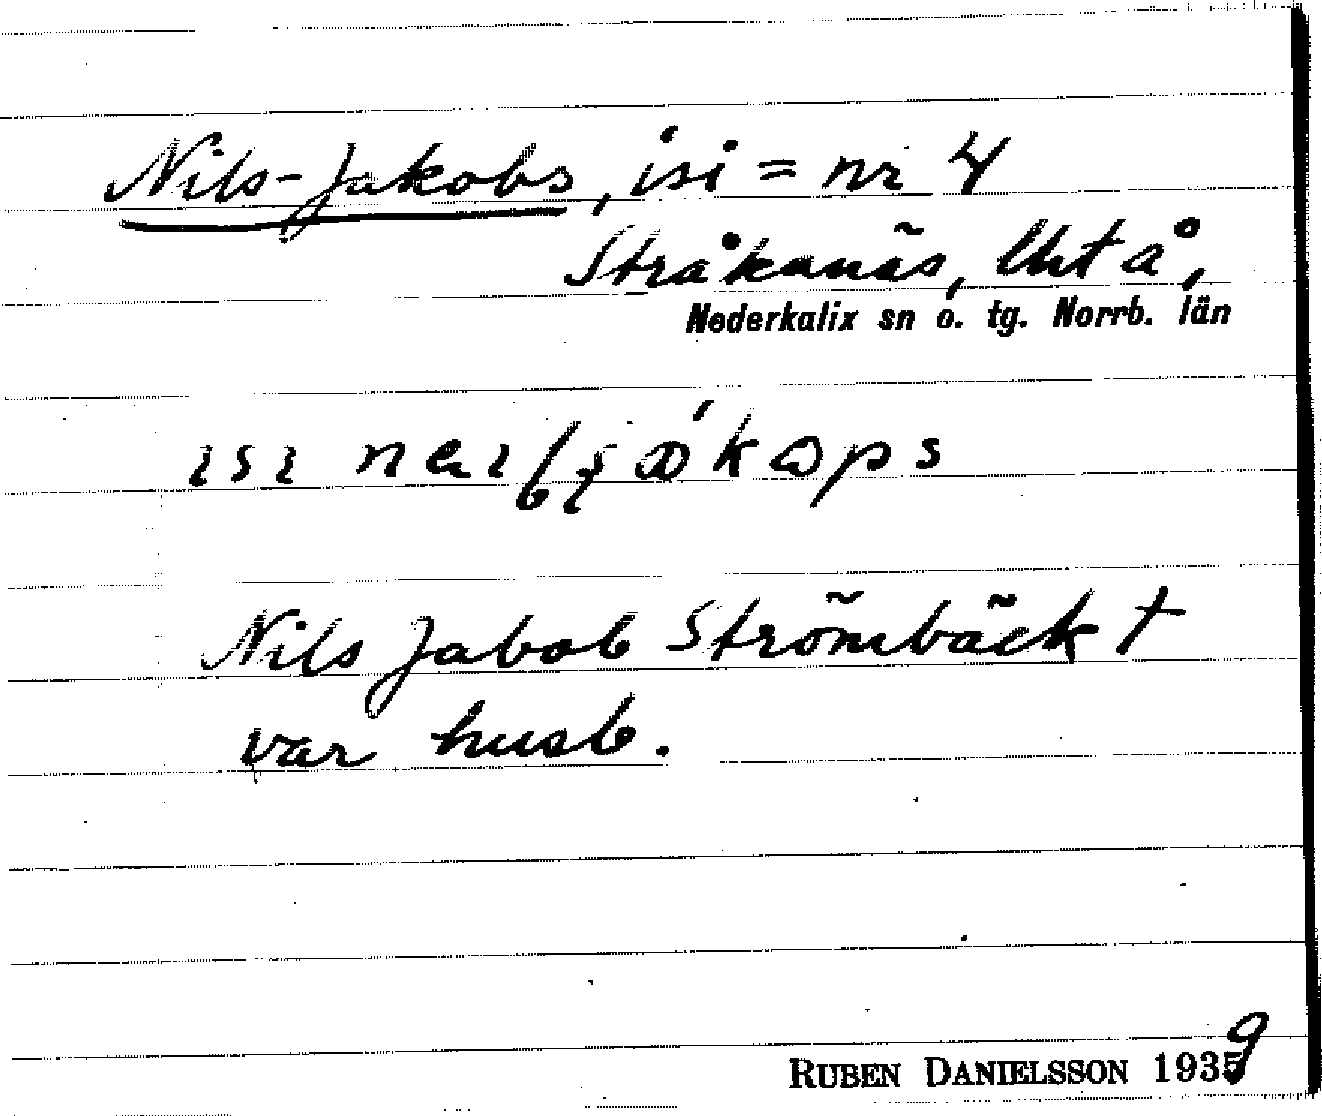 Nils-Jakobs, isi = nr 4
Stråkanäs,
Nederkalix sn o. tg. Norrb. län
ısı
Nils Jabob Strömbäck †
var husb.
RUBEN DANIELSSON 1939